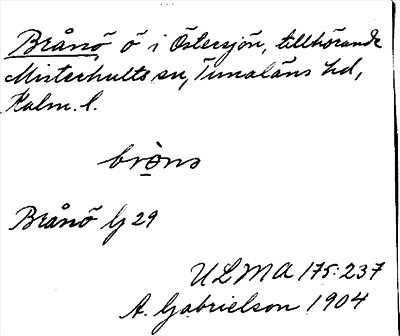 Brånö, ö i Östersjön, tillhörande
Misterhults sn, Tunaläns hd,
Kalm. l.
bròns
Brånö G 29
ULMA 175:237
A. Gabrielson 1904